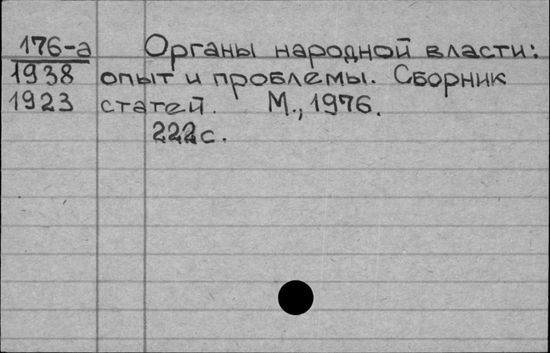 176-а Органы народной власти:
1938 опыт и проблемы. Сборник
1923 статей. М., 1976.
222с.